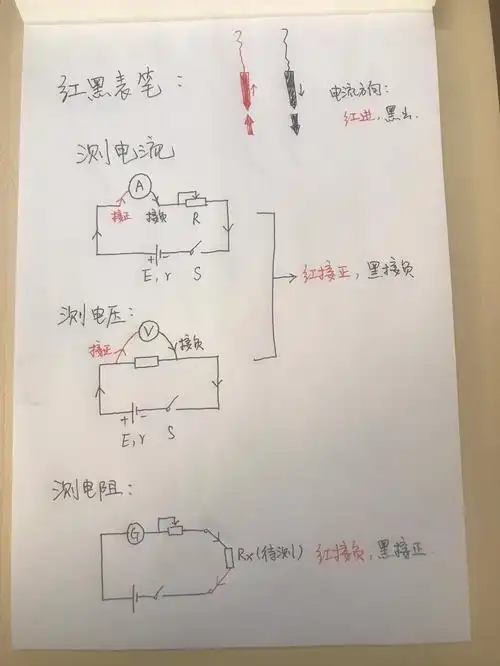 红黑表笔:
电流方向:
红进,黑出.
测电流
A
接正 接负 R
+ -
E,r S
红接正,黑接负
测电压:
V
接正 接负
+ -
E,r S
测电阻:
G
Rx(待测) 红接负,黑接正